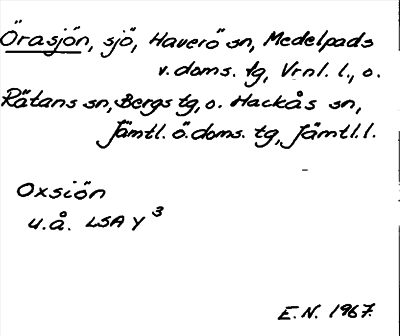 Örasjön, sjö, Haverö sn, Medelpads
v. doms. tg, Vrnl. l., o.
Rätans sn, Bergs tg, o. Hackås sn,
Jämtl. ö. doms. tg, Jämtl. l.
Oxsiön
u.å. LSA Y³
E.N. 1967.